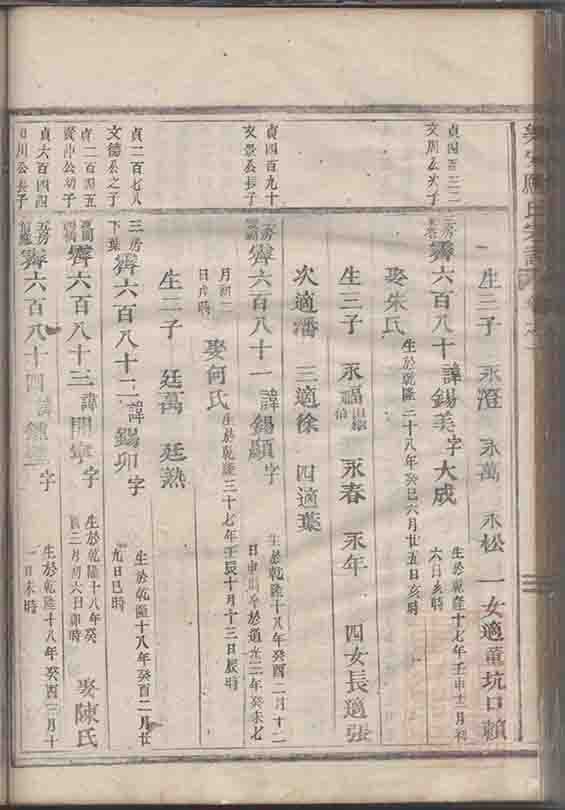 生三子 永澄 永萬 永松 一女適董坑口賴
貞四百三二
文周公次子
三房
霽六百八十 諱錫美字大成
生於乾隆十七年壬申十二月初
六日亥時
娶朱氏 生於乾隆三十八年癸巳六月廿五日亥時
生三子 永福 永春 永年 四女長適張
次適潘 三適徐 四適葉
貞四百九十
文景公長子
霽六百八十一 諱錫顯字
生於乾隆十八年癸酉二月十二
日申時卒於道光三年癸未七
月初二
日戌時
娶何氏 生於乾隆三十七年壬辰十月十三日辰時
生二子 廷萬 廷熟
貞二百七八
文德公之子
三房
下葉
霽六百八十二 諱錫卯字
生於乾隆十八年癸酉二月廿
九日巳時
貞二百四五
公幼子
霽六百八十三 諱開寧字
生於乾隆十八年癸
二月初六日卯時
娶陳氏
貞六百四四
日川公長子
五房
霽六百八十四 諱 字
生於乾隆十八年癸酉三月十
一日未時